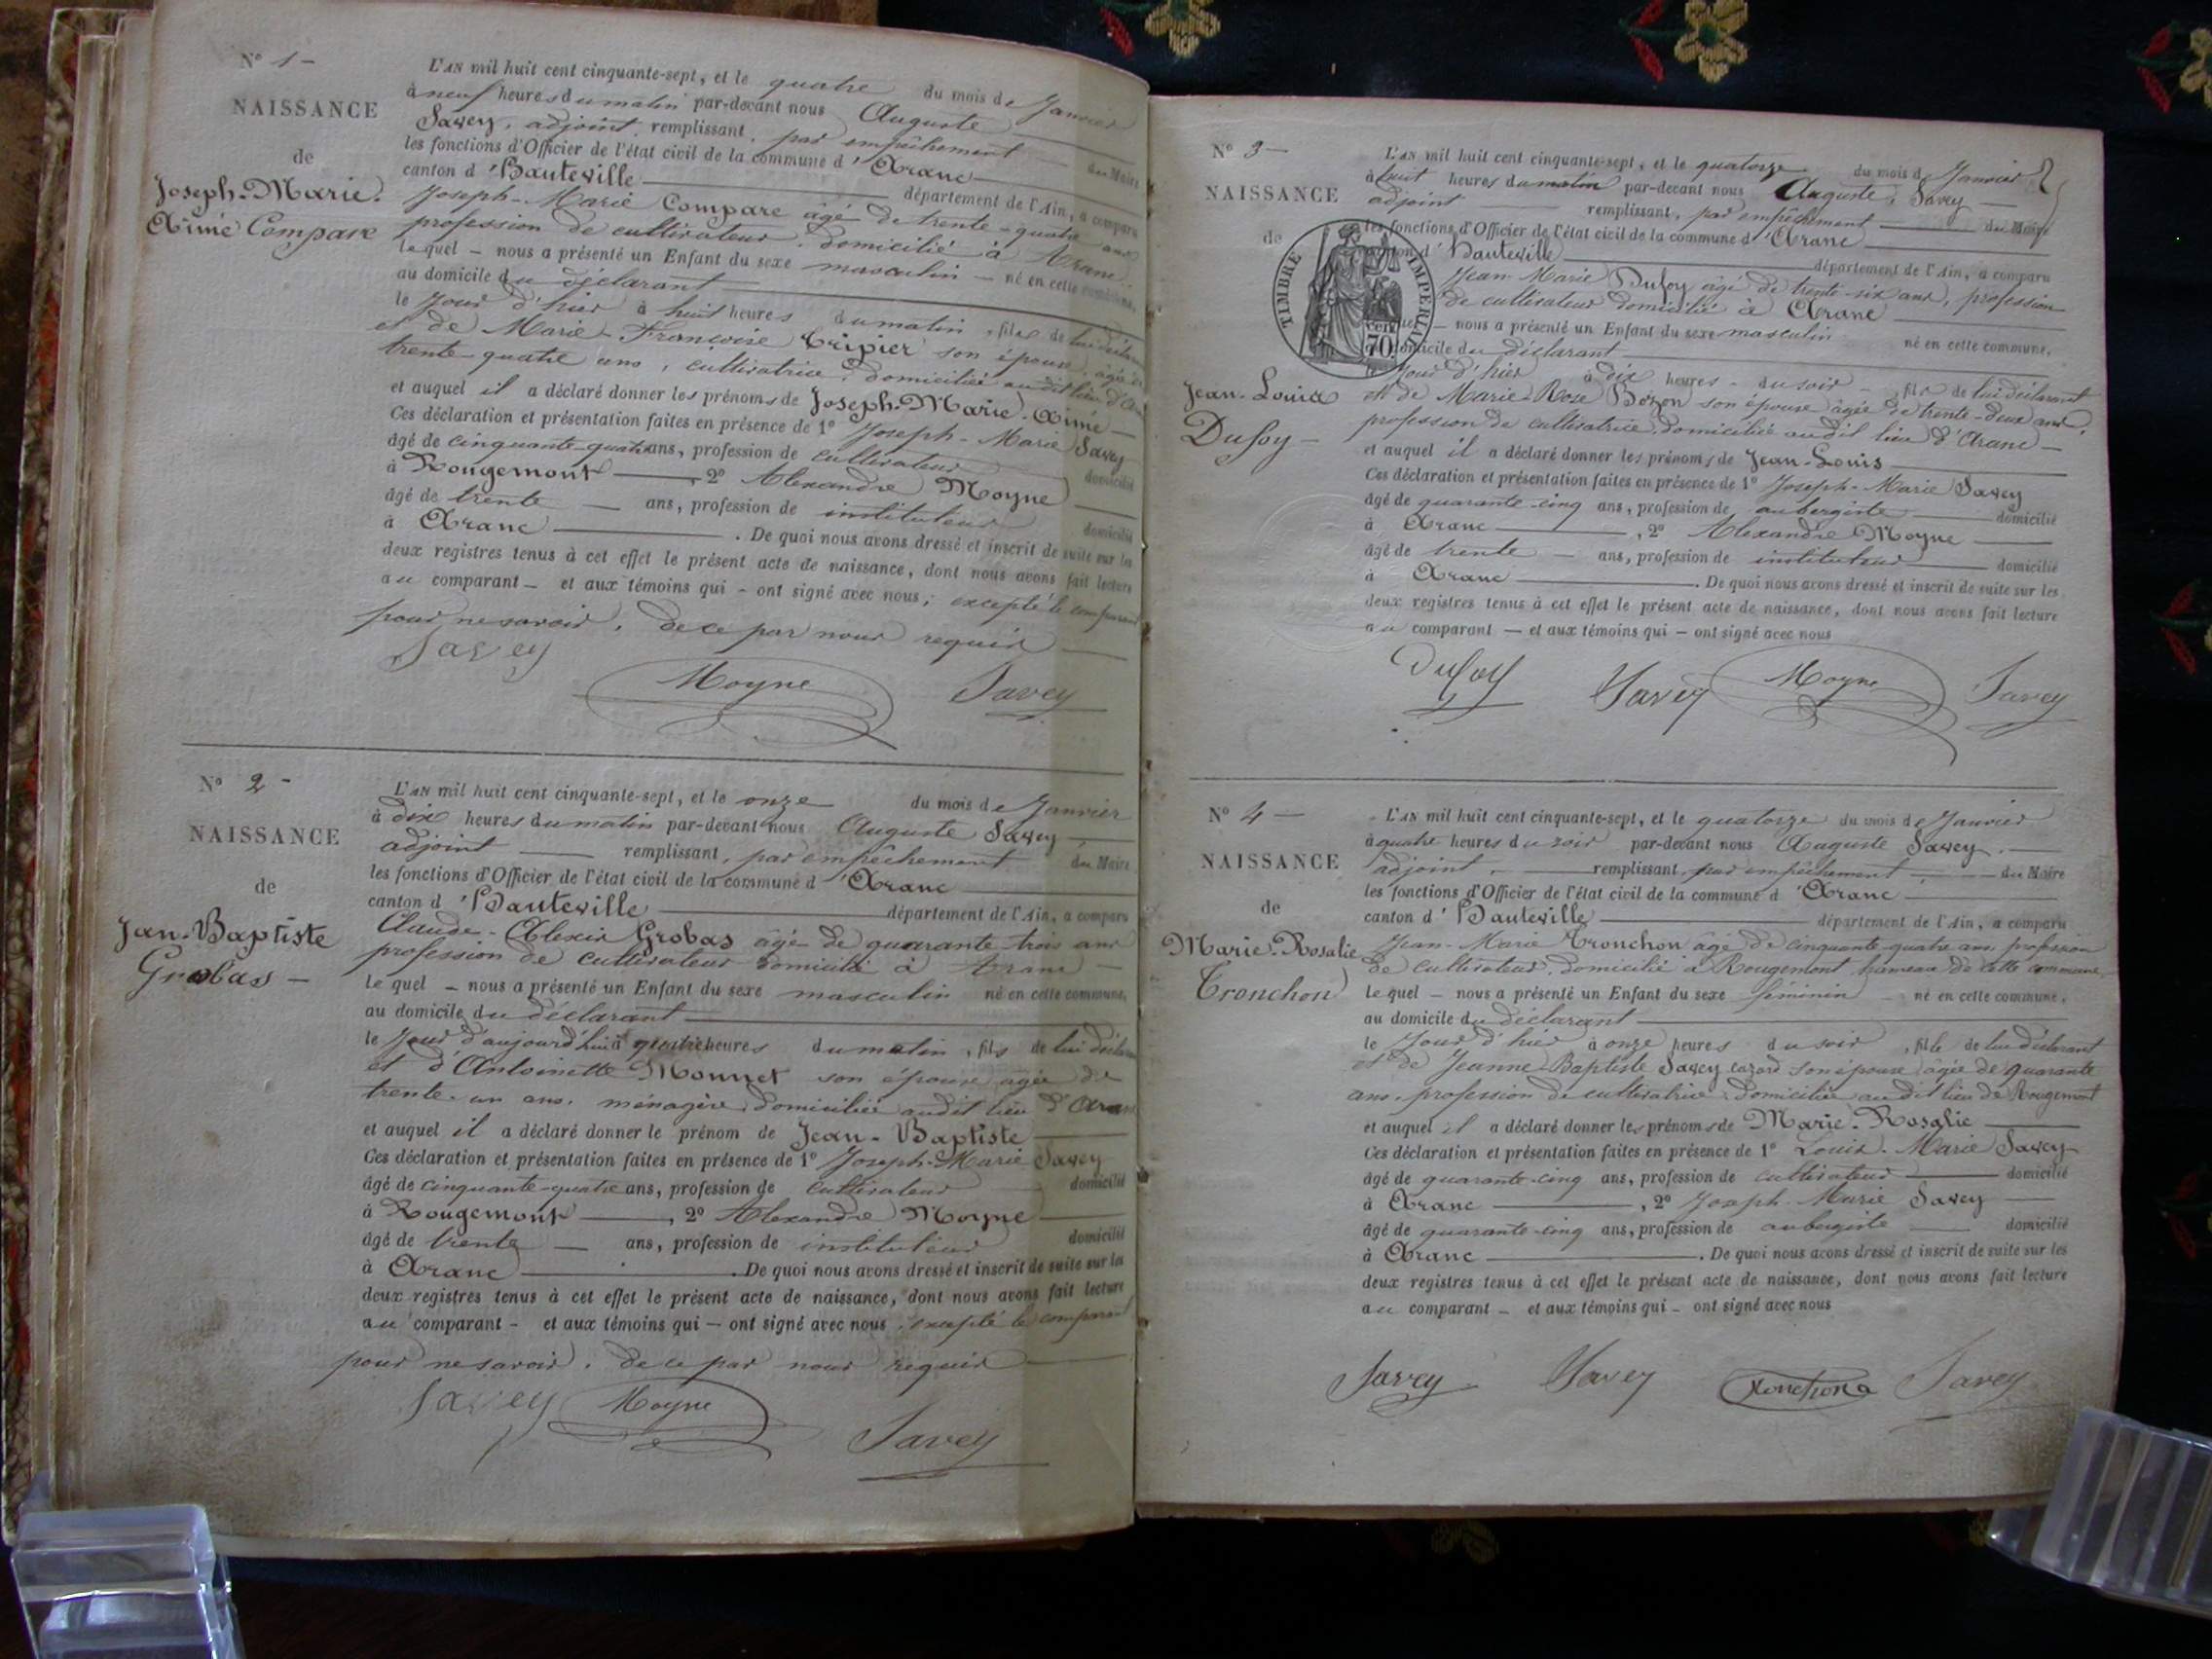 N° 1 —
NAISSANCE
de
Joseph-Marie.
Aimé Compare
L'AN mil huit cent cinquante-sept, et le quatre du mois de Janvier
à neuf heures du matin par-devant nous Auguste
Savey, adjoint, remplissant, par empêchement du Maire
les fonctions d'Officier de l'état civil de la commune d'Aranc
canton d'Hauteville département de l'Ain, a comparu
Joseph-Marie Compare âgé de trente-quatre ans
profession de cultivateur, domicilié à Aranc
lequel — nous a présenté un Enfant du sexe masculin — né en cette commune,
au domicile du déclarant
le Jour d'hier à huit heures du matin, fils de lui déclarant
et de Marie-Françoise Tripier son épouse, âgée de
trente-quatre ans, cultivatrice, domiciliée audit lieu d'Aranc
et auquel il a déclaré donner les prénoms de Joseph-Marie-Aimé —
Ces déclaration et présentation faites en présence de 1° Joseph-Marie Savey
âgé de cinquante-quatre ans, profession de cultivateur domicilié
à Rougemont —, 2° Alexandre Moyne
âgé de trente — ans, profession de instituteur domicilié
à Aranc — . De quoi nous avons dressé et inscrit de suite sur les
deux registres tenus à cet effet le présent acte de naissance, dont nous avons fait lecture
au comparant — et aux témoins qui — ont signé avec nous, excepté le comparant
pour ne savoir, de ce par nous requis —
Savey
Moyne
Savey
N° 2 —
NAISSANCE
de
Jean-Baptiste
Grobas —
L'AN mil huit cent cinquante-sept, et le onze du mois de Janvier
à dix heures du matin par-devant nous Auguste Savey —
adjoint — remplissant, par empêchement du Maire
les fonctions d'Officier de l'état civil de la commune d'Aranc
canton d'Hauteville département de l'Ain, a comparu
Claude-Alexis Grobas âgé de quarante-trois ans
profession de cultivateur domicilié à Aranc —
lequel — nous a présenté un Enfant du sexe masculin né en cette commune,
au domicile du déclarant
le Jour d'aujourd'hui à quatre heures du matin, fils de lui déclarant
et d'Antoinette Monnet son épouse âgée de
trente-un ans, ménagère, domiciliée audit lieu d'Aranc
et auquel il a déclaré donner le prénom de Jean-Baptiste
Ces déclaration et présentation faites en présence de 1° Joseph-Marie Savey
âgé de cinquante-quatre ans, profession de cultivateur domicilié
à Rougemont —, 2° Alexandre Moyne
âgé de trente — ans, profession de instituteur domicilié
à Aranc — . De quoi nous avons dressé et inscrit de suite sur les
deux registres tenus à cet effet le présent acte de naissance, dont nous avons fait lecture
au comparant — et aux témoins qui — ont signé avec nous, excepté le comparant
pour ne savoir, de ce par nous requis —
Savey
Moyne
Savey
N° 3 —
NAISSANCE
de
TIMBRE IMPERIAL
70 Cen
Jean-Louis
Dufoy —
L'AN mil huit cent cinquante-sept, et le quatorze du mois de Janvier
à huit heures du matin par-devant nous Auguste, Savey —
adjoint — remplissant, par empêchement — du Maire
les fonctions d'Officier de l'état civil de la commune d'Aranc
canton d'Hauteville département de l'Ain, a comparu
Jean-Marie Dufoy âgé de trente-six ans, profession
de cultivateur domicilié à Aranc
— nous a présenté un Enfant du sexe masculin né en cette commune,
domicile du déclarant
Jour d'hier à dix heures — du soir — fils de lui déclarant
et de Marie-Rose Bozon son épouse âgée de trente-deux ans,
profession de cultivatrice, domiciliée audit lieu d'Aranc —
et auquel il a déclaré donner les prénoms de Jean-Louis
Ces déclaration et présentation faites en présence de 1° Joseph-Marie Savey
âgé de quarante-cinq ans, profession de aubergiste domicilié
à Aranc —, 2° Alexandre Moyne —
âgé de trente — ans, profession de instituteur domicilié
à Aranc — . De quoi nous avons dressé et inscrit de suite sur les
deux registres tenus à cet effet le présent acte de naissance, dont nous avons fait lecture
au comparant — et aux témoins qui — ont signé avec nous
Dufoy
Savey
Moyne
Savey
N° 4 —
NAISSANCE
de
Marie-Rosalie
Tronchon
L'AN mil huit cent cinquante-sept, et le quatorze du mois de Janvier
à quatre heures du soir par-devant nous Auguste Savey. —
adjoint, — remplissant, par empêchement, — du Maire
les fonctions d'Officier de l'état civil de la commune d'Aranc
canton d'Hauteville département de l'Ain, a comparu
Jean-Marie Tronchon âgé de cinquante-quatre ans, profession
de cultivateur, domicilié à Rougemont, hameau de cette commune,
lequel — nous a présenté un Enfant du sexe féminin — né en cette commune,
au domicile du déclarant
le Jour d'hier à onze heures du soir, fille de lui déclarant
et de Jeanne-Baptiste Savey cazard son épouse âgée de quarante
ans, profession de cultivatrice, domiciliée audit lieu de Rougemont
et auquel il a déclaré donner les prénoms de Marie-Rosalie
Ces déclaration et présentation faites en présence de 1° Louis-Marie Savey
âgé de quarante-cinq ans, profession de cultivateur — domicilié
à Aranc —, 2° Joseph-Marie Savey —
âgé de quarante-cinq ans, profession de aubergiste — domicilié
à Aranc — . De quoi nous avons dressé et inscrit de suite sur les
deux registres tenus à cet effet le présent acte de naissance, dont nous avons fait lecture
au comparant — et aux témoins qui — ont signé avec nous
Savey
Savey
Tronchon
Savey